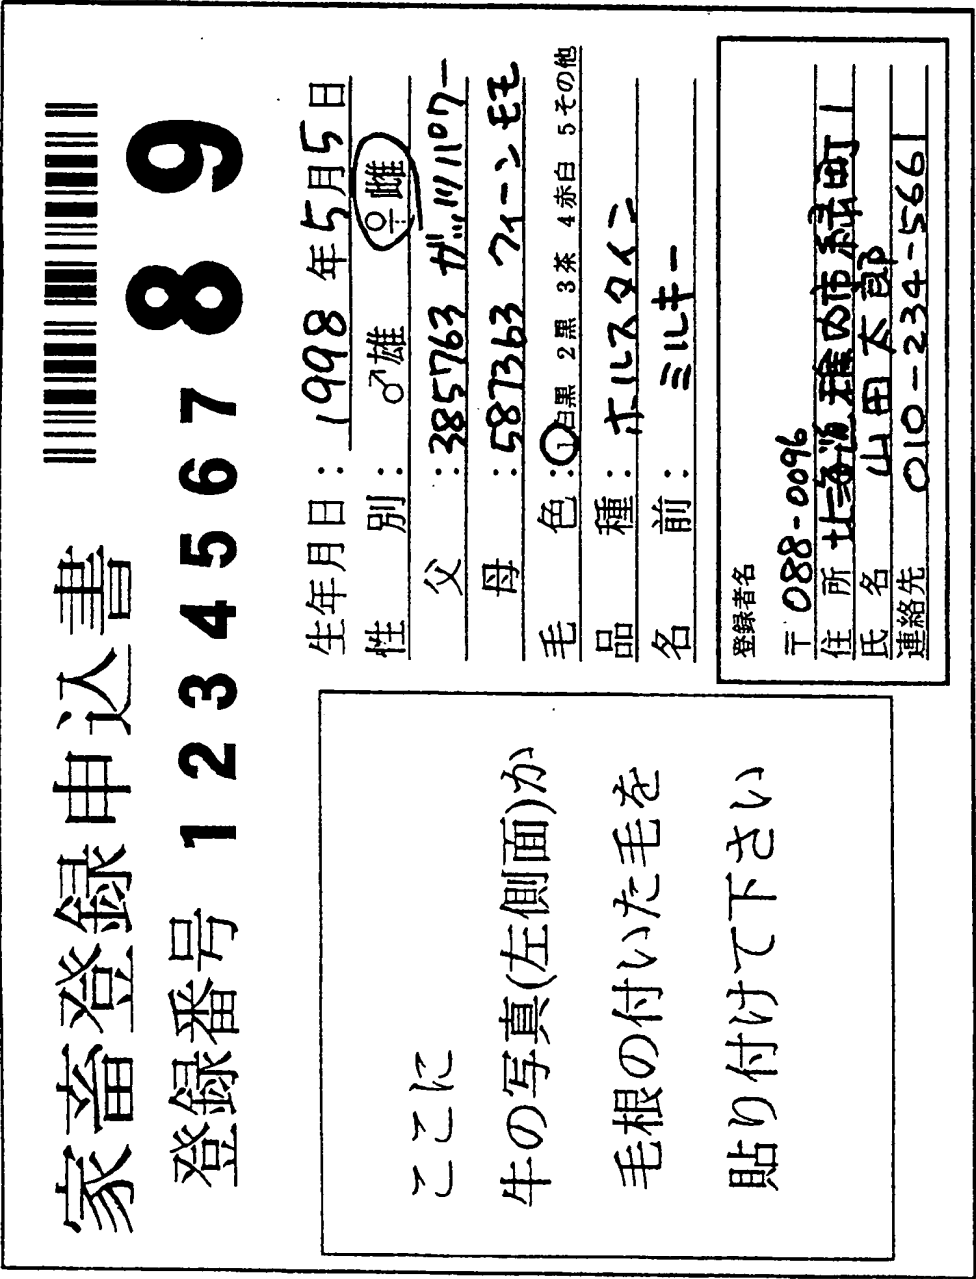 家畜登録申込書
登録番号 1 2 3 4 5 6 7 8 9
ここに
牛の写真(左側面)か
毛根の付いた毛を
貼り付けて下さい
生年月日：1998年5月5日
性別：♂雄 ♀雌
父：385763 ガッツパワー
母：587363 クィーンモモ
毛色：1白黒 2黒 3茶 4赤白 5その他
品種：ホルスタイン
名前：ミルキー
登録者名
〒088-0096
住所 北海道稚内市緑町1
氏名 山田太郎
連絡先 010-234-5661